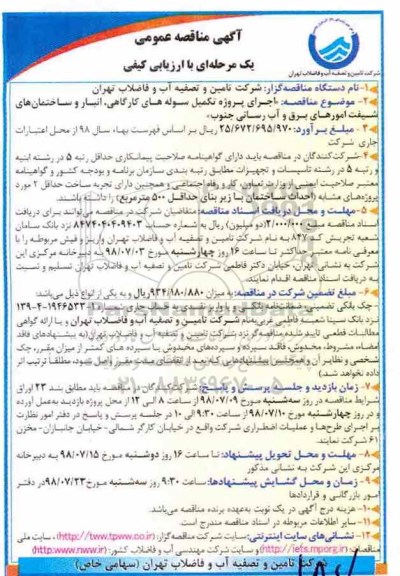 آگهی مناقصه عمومی
یک مرحله‌ای با ارزیابی کیفی
شرکت تامین و تصفیه آب و فاضلاب تهران
۱-نام دستگاه مناقصه‌گزار: شرکت تامین و تصفیه آب و فاضلاب تهران
۲- موضوع مناقصه: «اجرای پروژه تکمیل سوله های کارگاهی، انبار و ساختمان‌های
شیفت امورهای برق و آب رسانی جنوب»
۳- مبلغ برآورد: ۲۵/۶۷۲/۶۹۵/۹۷۰ ریال بر اساس فهرست بهاء سال ۹۸ از محل اعتبارات
جاری شرکت
۴-شرکت‌کنندگان در مناقصه باید دارای گواهینامه صلاحیت پیمانکاری حداقل رتبه ۵ در رشته ابنیه
و رتبه ۵ در رشته تاسیسات و تجهیزات مطابق رتبه بندی سازمان برنامه و بودجه کشور و گواهینامه
معتبر صلاحیت ایمنی از وزارت تعاون، کار و رفاه اجتماعی و همچنین دارای تجربه ساخت حداقل ۲ مورد
پروژه‌های مشابه (احداث ساختمان با زیر بنای حداقل ۵۰۰ مترمربع) را داشته باشند.
۵- مهلت و محل دریافت اسناد مناقصه: متقاضیان شرکت در مناقصه می‌توانند برای دریافت
اسناد مناقصه مبلغ ۲/۰۰۰/۰۰۰ (دو میلیون) ریال به شماره حساب ۸۴۷۴۰۴۰۴۰۹۴۰۳ نزد بانک سامان
شعبه تجریش کد ۸۴۷ به نام شرکت تامین و تصفیه آب و فاضلاب تهران واریز و فیش مربوطه را با
معرفی نامه معتبر، حداکثر تا ساعت ۱۶ روز چهارشنبه مورخ ۹۸/۰۷/۰۳ به دبیرخانه مرکزی این
شرکت به نشانی تهران، خیابان دکتر فاطمی شرکت تامین و تصفیه آب و فاضلاب تهران تسلیم و نسبت
به دریافت اسناد مناقصه اقدام نمایند.
۶- مبلغ تضمین شرکت در مناقصه: به میزان ۹۳۴/۱۸۰/۸۸۰ ریال و به یکی از انواع ذیل می‌باشد:
نزد بانک سینا شعبه فاطمی غربی به‌نام شرکت تامین و تصفیه آب و فاضلاب تهران و یا ارائه گواهی
مطالبات قطعی تایید شده مناقصه گر نزد شرکت تامین و تصفیه آب و فاضلاب تهران (به پیشنهادهای فاقد
امضاء، مشروط، مخدوش، فاقد سپرده و سپرده‌های مخدوش یا سپرده های کمتر از میزان مقرر، چک
شخصی و نظایر آن و همچنین پیشنهادهایی که بعد از انقضای مدت مقرر واصل شود، مطلقا ترتیب اثر
داده نخواهد شد)
۷- زمان بازدید و جلسه پرسش و پاسخ: شرکت‌کنندگان در مناقصه باید مطابق بند ۲۳ اوراق
شرایط مناقصه در روز سه‌شنبه مورخ ۹۸/۰۷/۰۹ از ساعت ۸ الی ۱۲ از محل پروژه بازدید به‌عمل آورده
و در روز چهارشنبه مورخ ۹۸/۰۷/۱۰ از ساعت ۹:۳۰ الی ۱۰ در جلسه پرسش و پاسخ در دفتر امور نظارت
بر اجرای طرح‌ها و عملیات اضطراری شرکت واقع در خیابان کارگر شمالی- خیابان جانبازان- مخزن
۶۱ شرکت نمایند.
۸- مهلت و محل تحویل پیشنهاد: تا ساعت ۱۶ روز دوشنبه مورخ ۹۸/۰۷/۱۵ به دبیرخانه
مرکزی این شرکت به نشانی مذکور
۹- زمان و محل گشایش پیشنهادها: ساعت ۹:۳۰ روز سه‌شنبه مورخ ۹۸/۰۷/۲۳ در دفتر
امور بازرگانی و قراردادها
۱۰- هزینه درج آگهی در یک نوبت به‌عهده برنده مناقصه می‌باشد.
۱۱- سایر اطلاعات مربوطه در اسناد مناقصه مندرج است
۱۲- نشانی‌های سایت اینترنتی: سایت شرکت (http://tww.tpww.co.ir)، سایت ملی
مناقصات (http://iets.mporg.ir) و سایت شرکت مهندسی آب و فاضلاب کشور: (http:www.nww.ir)
شرکت تامین و تصفیه آب و فاضلاب تهران (سهامی خاص)